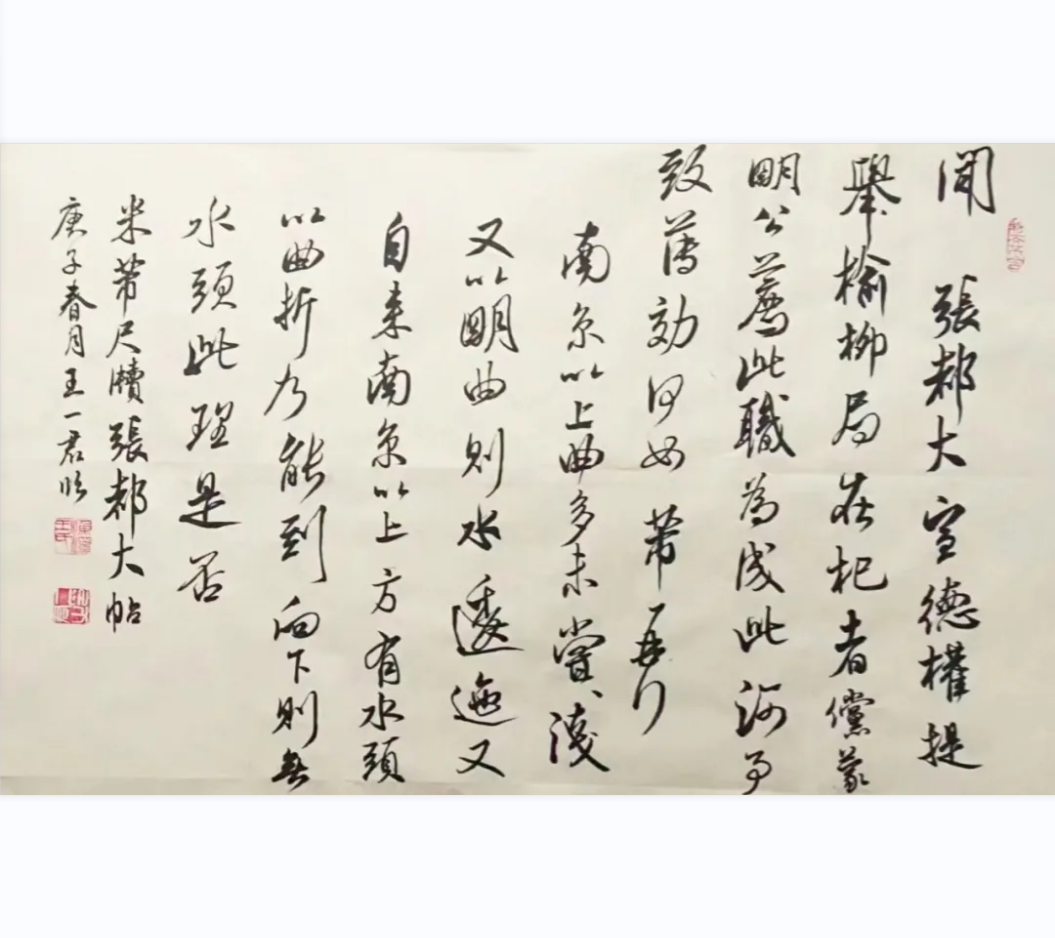 聞 張都大宣德權提
舉榆柳局在杞者儻蒙
明公薦此職為成此河事
致薄効何如 芾再
南京以上曲多未嘗淺
又以明曲則水逶迤又
自来南京以上方有水頭
以曲折乃能到向下則無
水頭此理是否
米芾尺牘張都大帖
庚子春月王一君臨